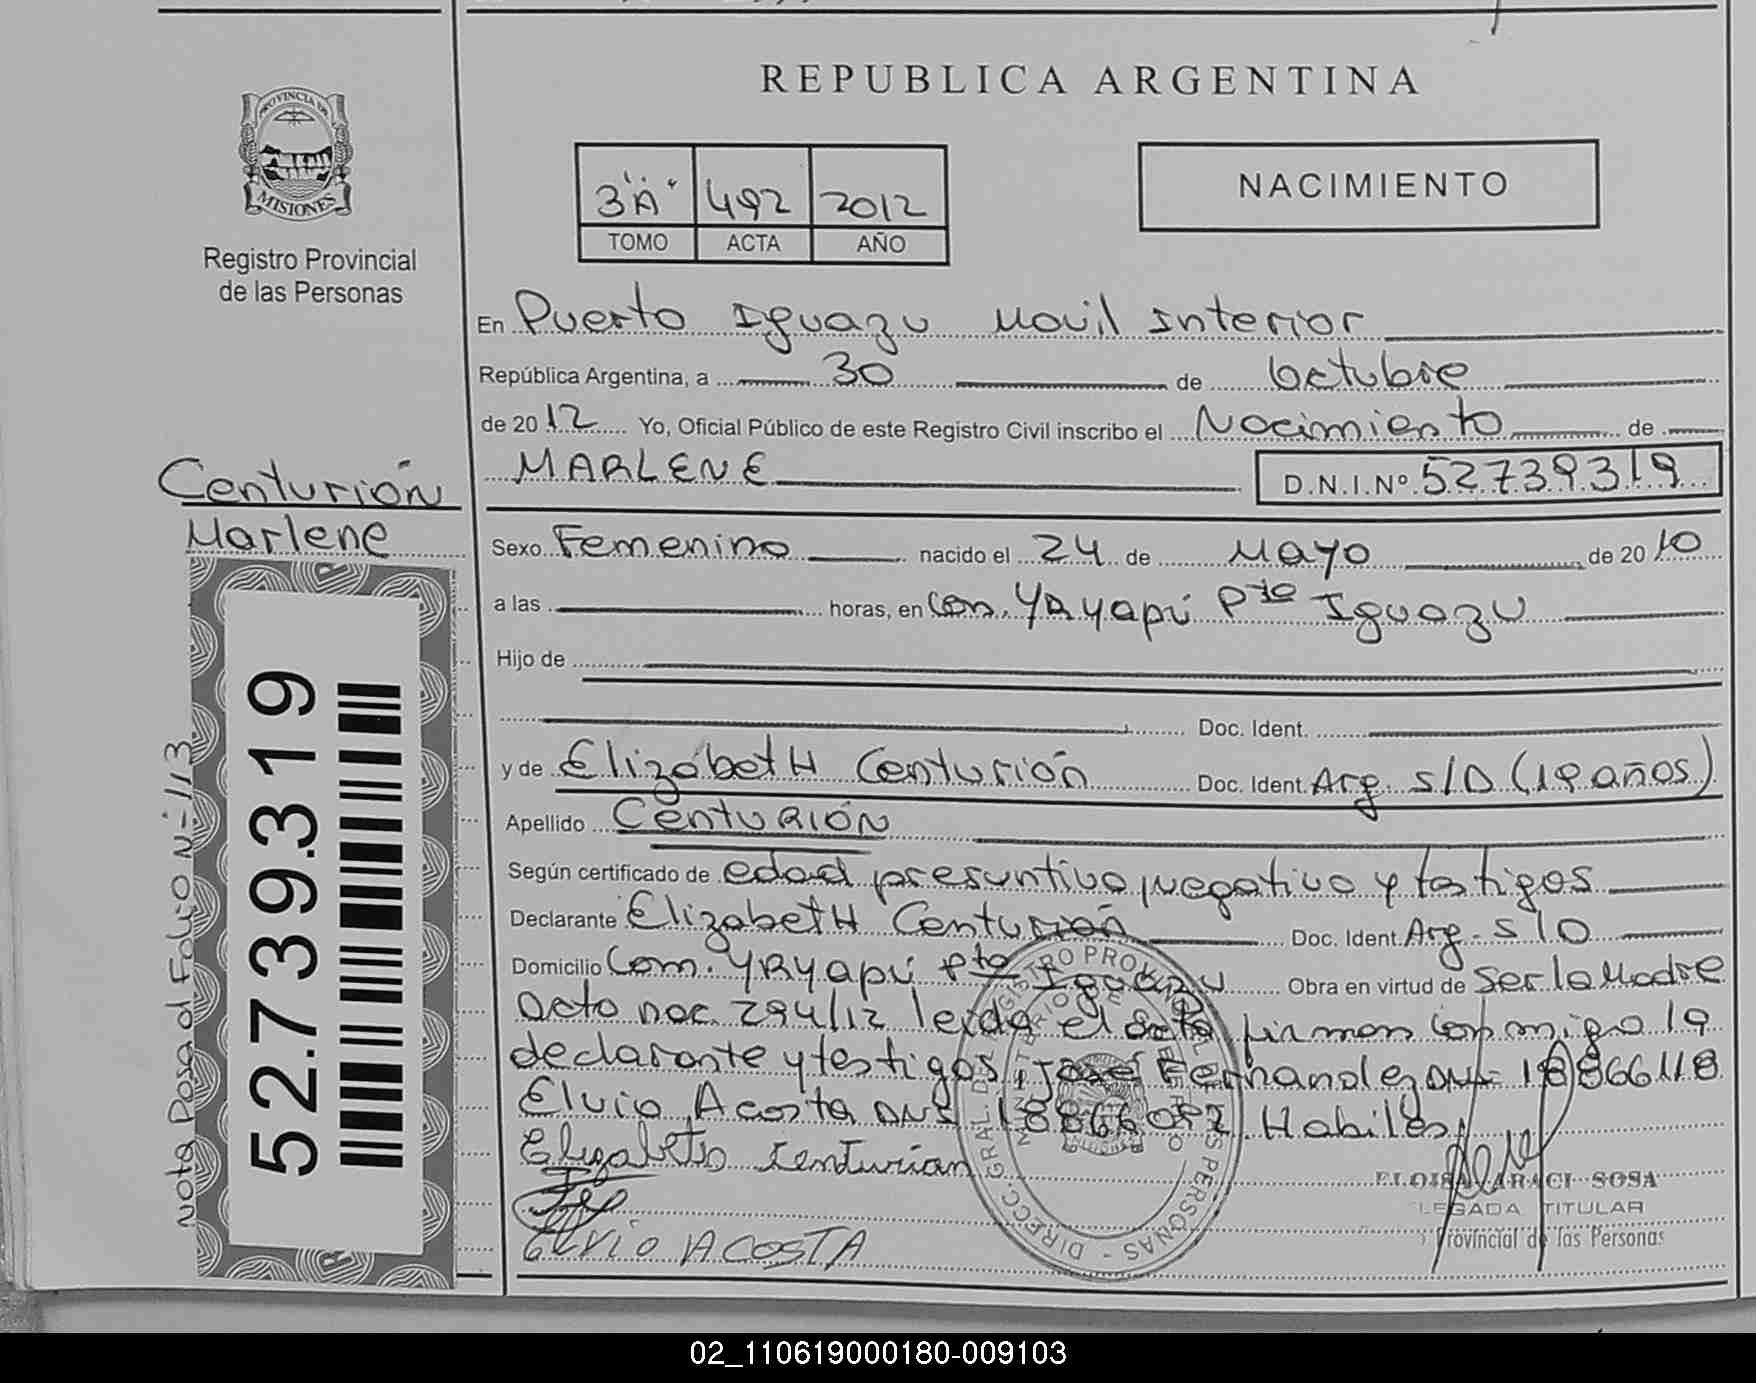 REPUBLICA ARGENTINA
PROVINCIA DE
MISIONES
Registro Provincial
de las Personas
3 "A" 492 2012
TOMO ACTA AÑO
NACIMIENTO
En Puerto Iguazu Movil Interior
República Argentina, a 30 de Octubre
de 2012 Yo, Oficial Público de este Registro Civil inscribo el Nacimiento de
MARLENE D.N.I.Nº 52739319
Centurión
Marlene
Sexo Femenino nacido el 24 de Mayo de 2010
a las horas, en Com. YRyapú Pto Iguazu
Hijo de
Doc. Ident.
y de ElizabetH Centurión Doc. Ident. Arg. S/D (19 años)
Apellido CentuRIÓN
Según certificado de edad presuntiva, negativo y testigos
Declarante ElizabetH Centurión Doc. Ident. Arg. S/D
Domicilio Com. YRyapú Pto Iguazu Obra en virtud de Ser la Madre
Acto nac. 294/12 leida el acta firman conmigo la
declarante y testigos, José Fernandez DNI= 18866118
Elvio Acosta DNI 18866092. Habiles
Elizabeth Centurian
Elvio ACOSTA
ELOISA ARACI SOSA
LEGADA TITULAR
Provincial de las Personas
52.739.319
nota Pasa al Folio Nº 113
02_110619000180-009103